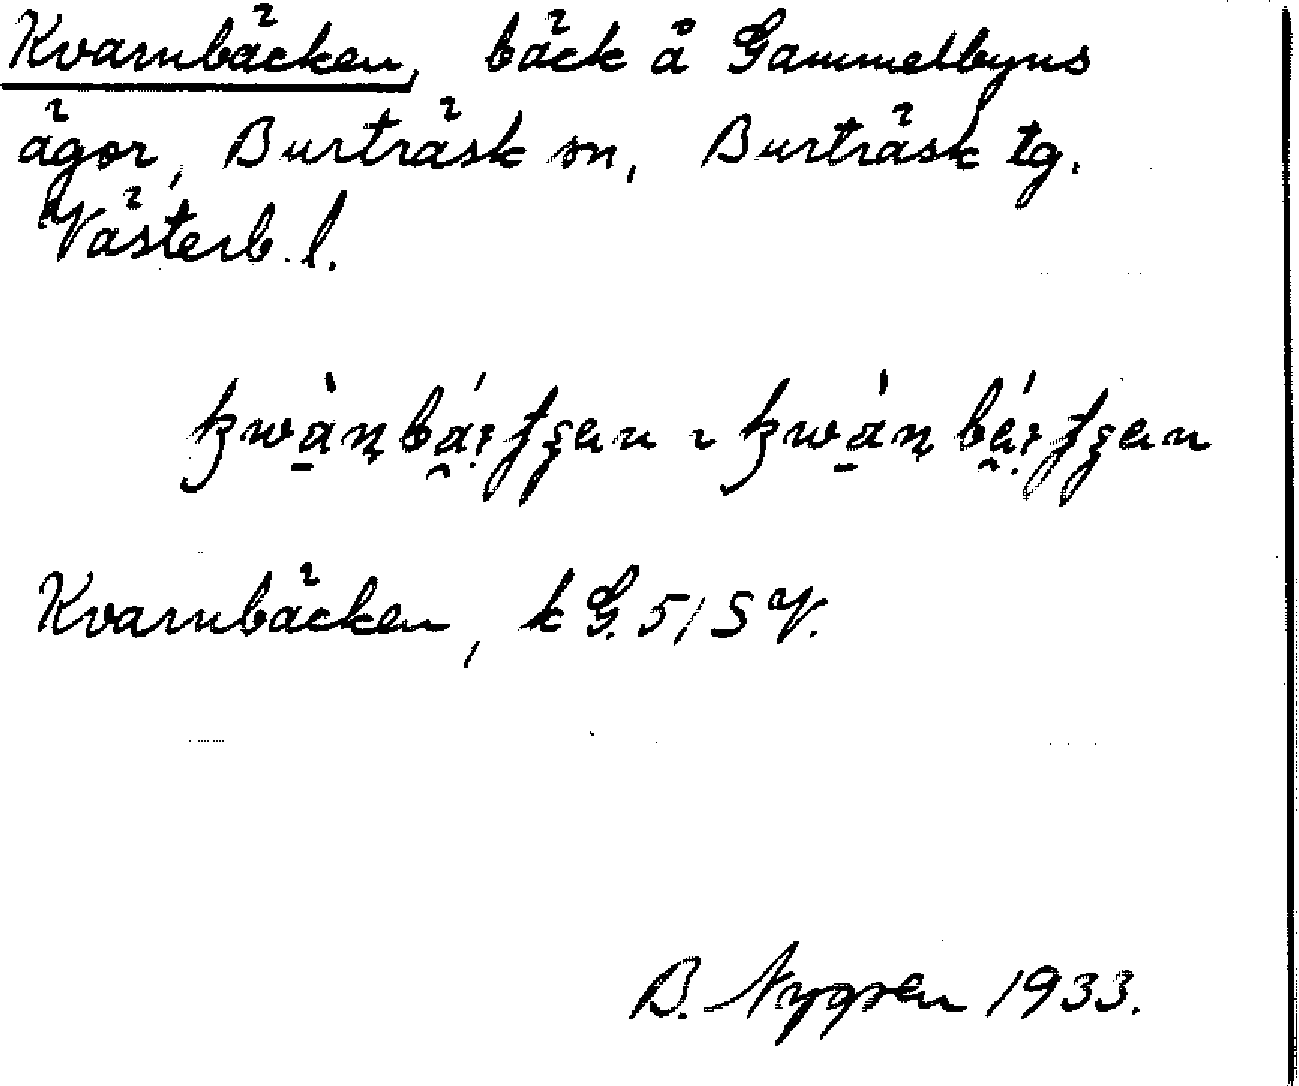 Kvarnbäcken, bäck å Gammelbyns
ägor, Burträsk sn, Burträsk tg.
Västerb. l.
Kvarnbäcken, k G. 5 / S V.
B. Nygren 1933.